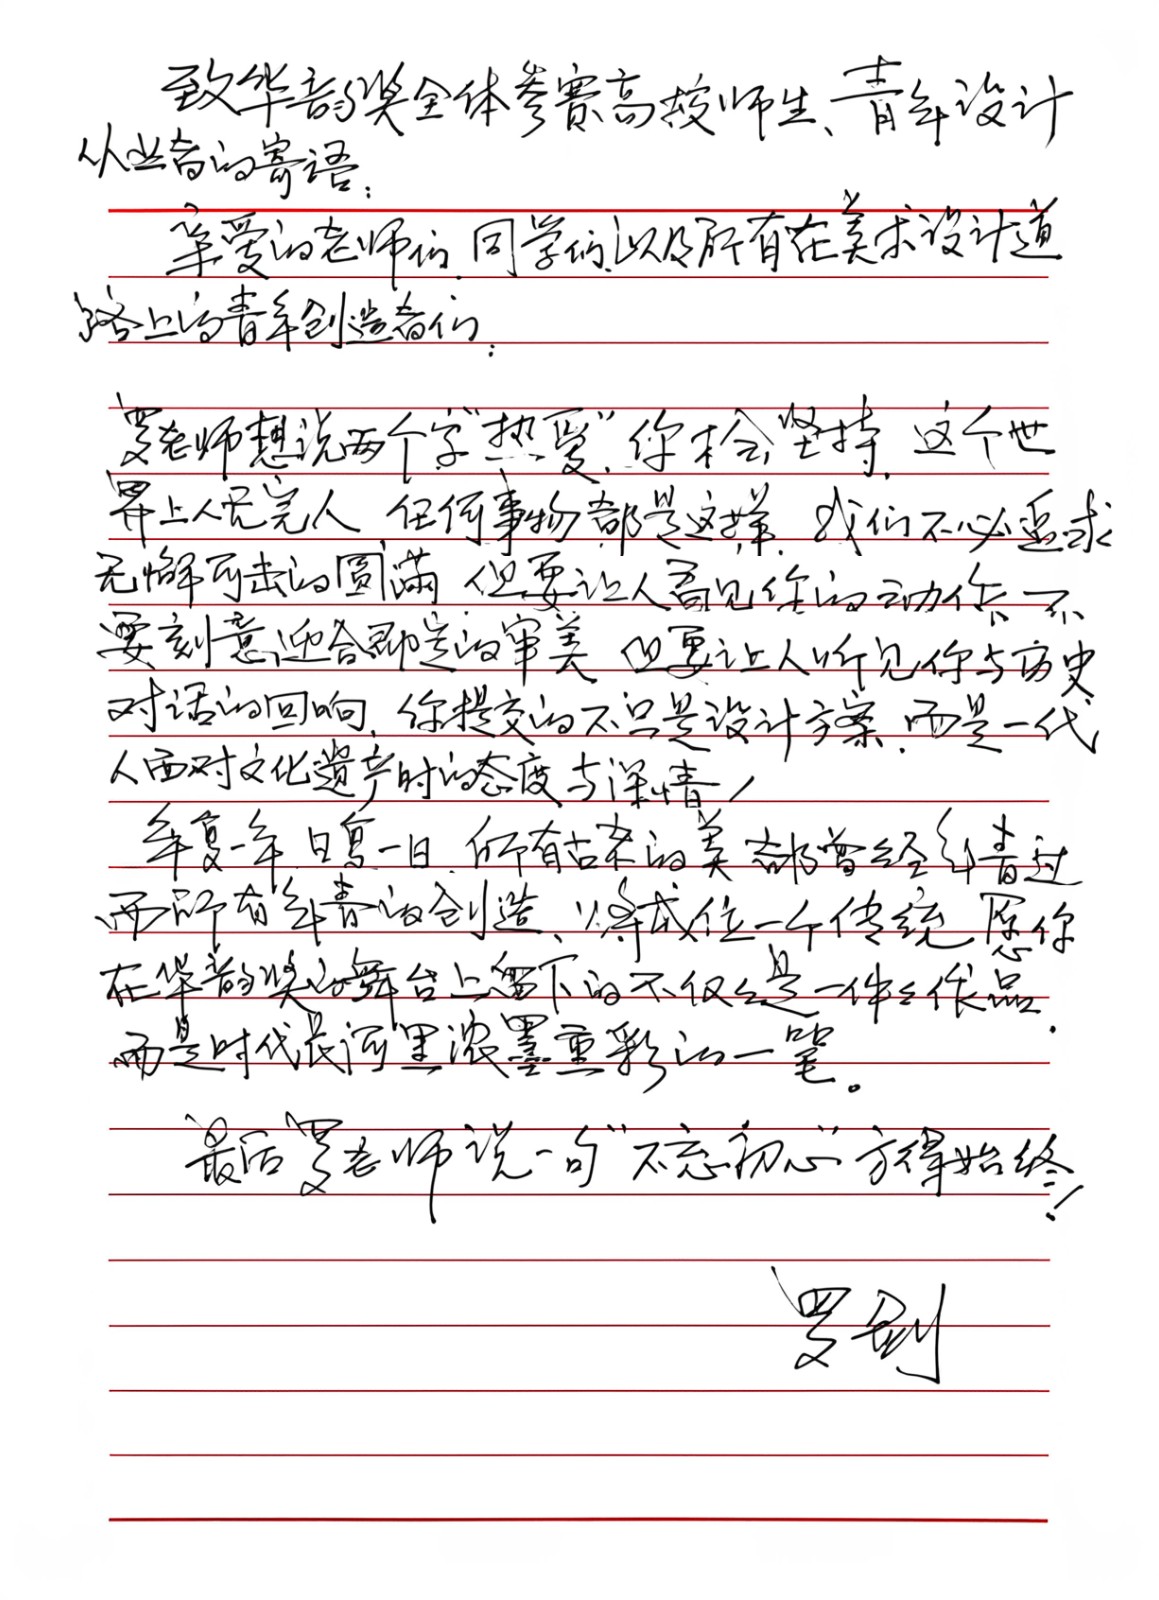 致华韵奖全体参赛高校师生、青年设计
从业者的寄语：
亲爱的老师们、同学们、以及所有在美术设计道
路上的青年创造者们：
罗老师想说两个字“热爱”，你才会坚持，这个世
界上人无完人，任何事物都是这样，我们不必追求
无懈可击的圆满，但要让人看见你的动作，不
要刻意迎合既定的审美，但要让人听见你与历史
对话的回响，你提交的不只是设计方案，而是一代
人面对文化遗产时的态度与深情！
年复一年，日复一日，所有古老的美都曾经年青过
而所有年青的创造、终将成位一个传统，愿你
在华韵奖的舞台上留下的不仅仅是一件件作品，
而是时代长河里浓墨重彩的一笔。
最后罗老师说一句“不忘初心”方得始终！
罗剑